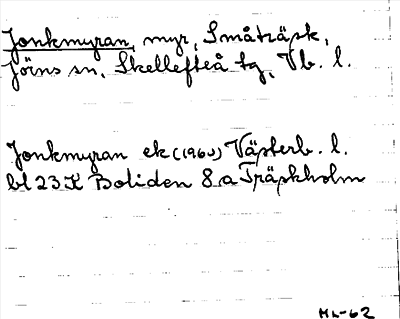 Jonkmyran, myr, Småträsk,
Jörns sn, Skellefteå tg, Vb. l.
Jonkmyran ek (1960) Västerb. l.
bl 23 K Boliden 8 a Träskholm
ML-62